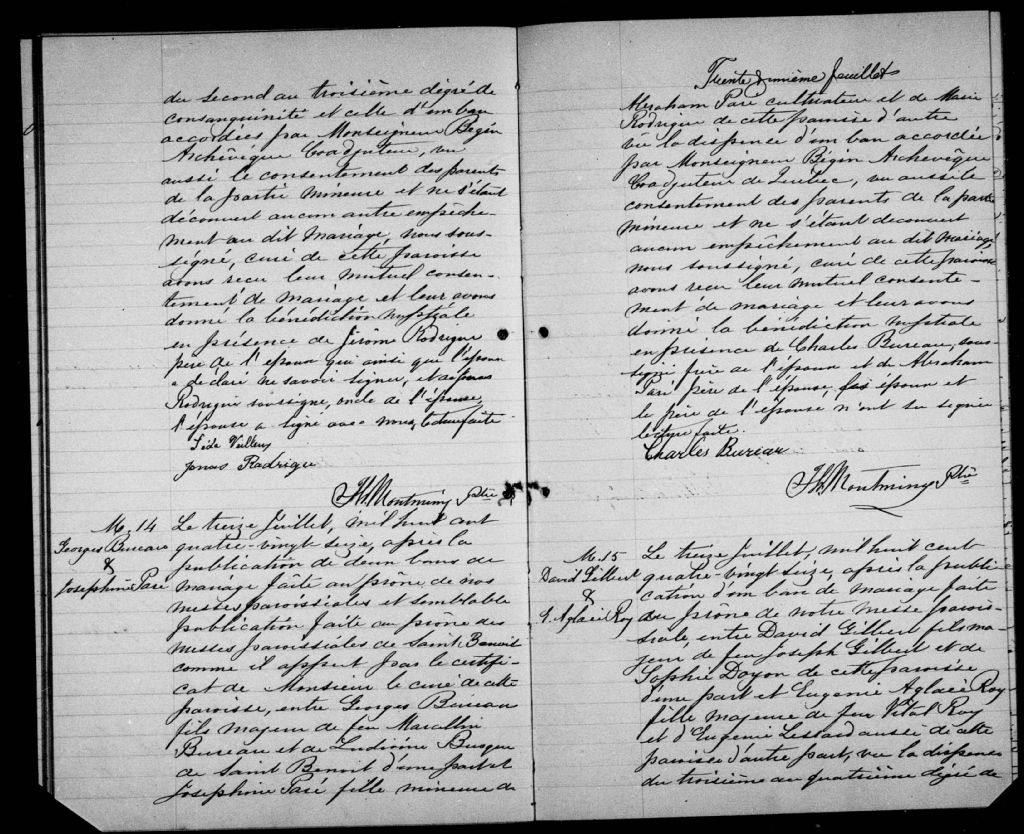 du second au troisième dégré de
consanguinité et celle d'un ban
accordées par Monseigneur Bégin
Archévêque Coadjuteur, vu
aussi le consentement des parents
de la partie mineure et ne s'étant
découvert aucun autre empêche-
ment au dit mariage, nous sous-
signé, curé de cette paroisse
avons reçu leur mutuel consen-
tement de mariage et leur avons
donné la bénédiction nuptiale
en présence de Jérôme Rodrigue
père de l'époux qui ainsi que l'époux
a declaré ne savoir signer, et de Jonas
Rodrigue soussigné, oncle de l'épouse,
l'épouse a signé avec nous, lecture faite
Veilleux
Jonas Rodrigue
Montminy Ptre
M. 14
Georges Bureau
&
Josephine Paré
Le treize Juillet, mil huit cent
quatre-vingt seize, après la
publication de deux bans de
mariage faite au prône de nos
messes paroissiales et semblable
publication faite au prône des
messes paroissiales de Saint Benoit
comme il appert par le certifi-
cat de Monsieur le curé de cette
paroisse, entre Georges Bureau
fils majeur de feu Marcellin
Bureau et de Busque
de Saint Benoit d'une part et
Josephine Paré fille mineure de
Trente deuxième feuillet
Abraham Paré cultivateur et de Marie
Rodrigue de cette paroisse d'autre
vu la dispense d'un ban accordée
par Monseigneur Bégin Archevêque
Coadjuteur de Québec, vu aussi le
consentement des parents de la partie
mineure et ne s'étant decouvert
aucun empêchement au dit mariage
nous soussigné, curé de cette paroisse
avons reçu leur mutuel consente-
ment de mariage et leur avons
donné la bénédiction nuptiale
en présence de Charles Bureau, sous-
signé frère de l'époux et de Abraham
Paré père de l'épouse, époux et
le père de l'épouse n'ont su signer
lecture faite.
Charles Bureau
Montminy Ptre
M. 15
David Gilbert
&
E. Aglaée Roy
Le treize Juillet, mil huit cent
quatre-vingt seize, après la publi-
cation d'un ban de mariage faite
au prône de notre messe parois-
siale, entre David Gilbert fils ma-
jeur de feu Joseph Gilbert et de
Sophie Doyon de cette paroisse
d'une part et Eugenie Aglaée Roy
fille majeure de feu Vital Roy
et d'Eugenie Lessard aussi de cette
paroisse d'autre part, vu la dispense
du troisième au quatrième dégré de